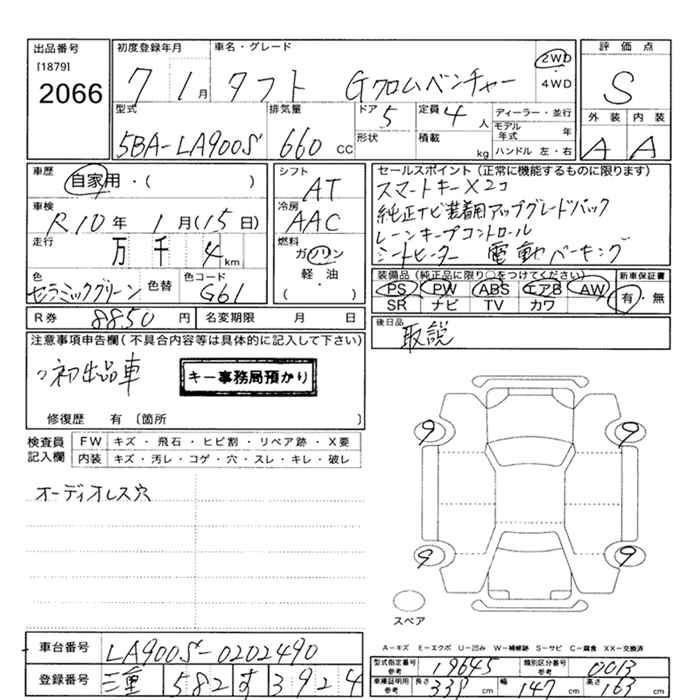 出品番号
[1879]
2066
初度登録年月
7 1月
車名・グレード
タフト Gクロムベンチャー
2WD
・
4WD
評価点
S
外装 内装
A A
型式
5BA-LA900S
排気量
660 CC
ドア
5
形状
定員
4 人
積載
kg
ディーラー・並行
モデル年式 年
ハンドル 左・右
車歴
自家用・( )
車検
R10年 1月(15日)
走行
万 千 4 km
色
セラミックグリーン
色替
色コード
G61
シフト
AT
冷房
AAC
燃料
ガソリン
軽・油
( )
セールスポイント(正常に機能するものに限ります)
スマートキー×2コ
純正ナビ装着用アップグレードパック
レーンキープコントロール
シートヒーター 電動パーキング
装備品(純正品に限り○をつけてください)
PS PW ABS エアB AW
SR ナビ TV カワ
新車保証書
有・無
R券 8850 円
名変期限 月 日
後日品
取説
注意事項申告欄(不具合内容等は具体的に記入して下さい)
初出品車
キー事務局預かり
修復歴 有 〔箇所 〕
検査員記入欄
FW キズ・飛石・ヒビ割・リペア跡・X要
内装 キズ・汚レ・コゲ・穴・スレ・キレ・破レ
オーディオレス穴
9 9
9 9
スペア
A-キズ E-エクボ U-凹み W-補修跡 S-サビ C-腐食 XX-交換済
車台番号 LA900S-0202490
登録番号 三重 582 す 3924
型式指定番号参考 19645 類別区分番号参考 0013
車庫証明用参考 長さ 339 cm 幅 147 cm 高さ 163 cm